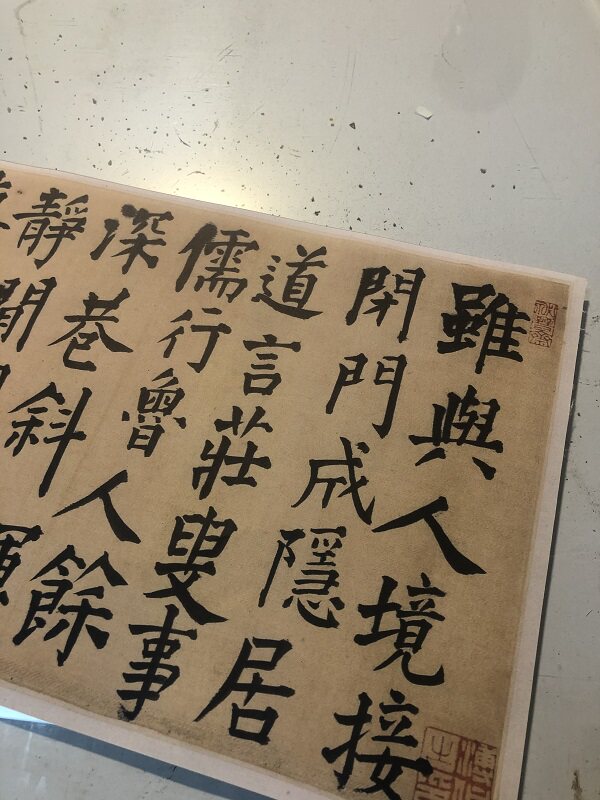 雖與人境接
閉門成隱居
道言莊叟事
儒行魯人餘
深巷斜
靜